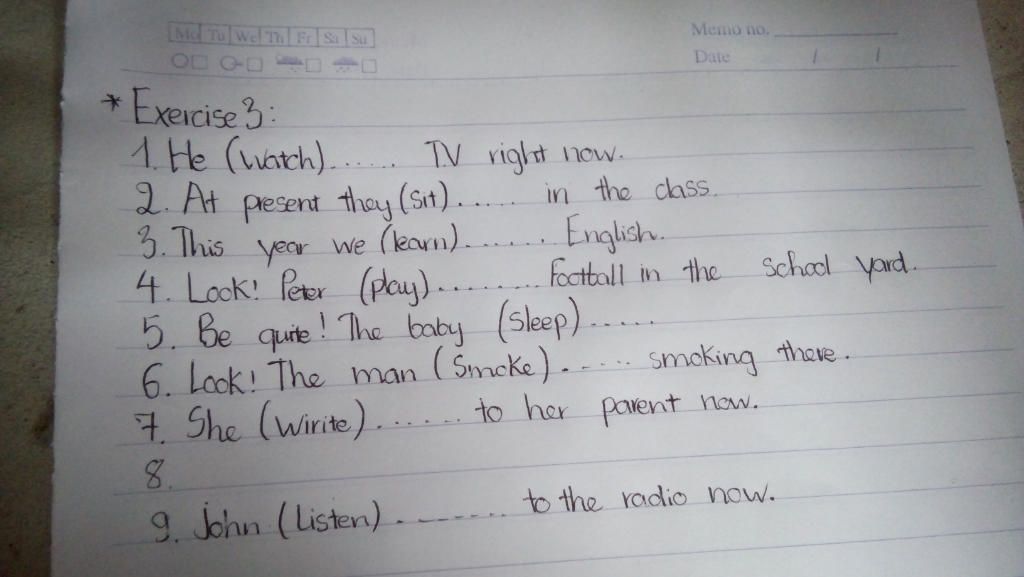 Mo Tu We Th Fr Sa Su
Memo no.
Date / /
* Exercise 3:
1. He (watch)...... TV right now.
2. At present they (sit)...... in the class.
3. This year we (learn)....... English.
4. Look! Peter (play)......... football in the school yard.
5. Be quite! The baby (sleep)......
6. Look! The man (Smoke)....... smoking there.
7. She (Wirite)....... to her parent now.
8.
9. John (Listen)........ to the radio now.